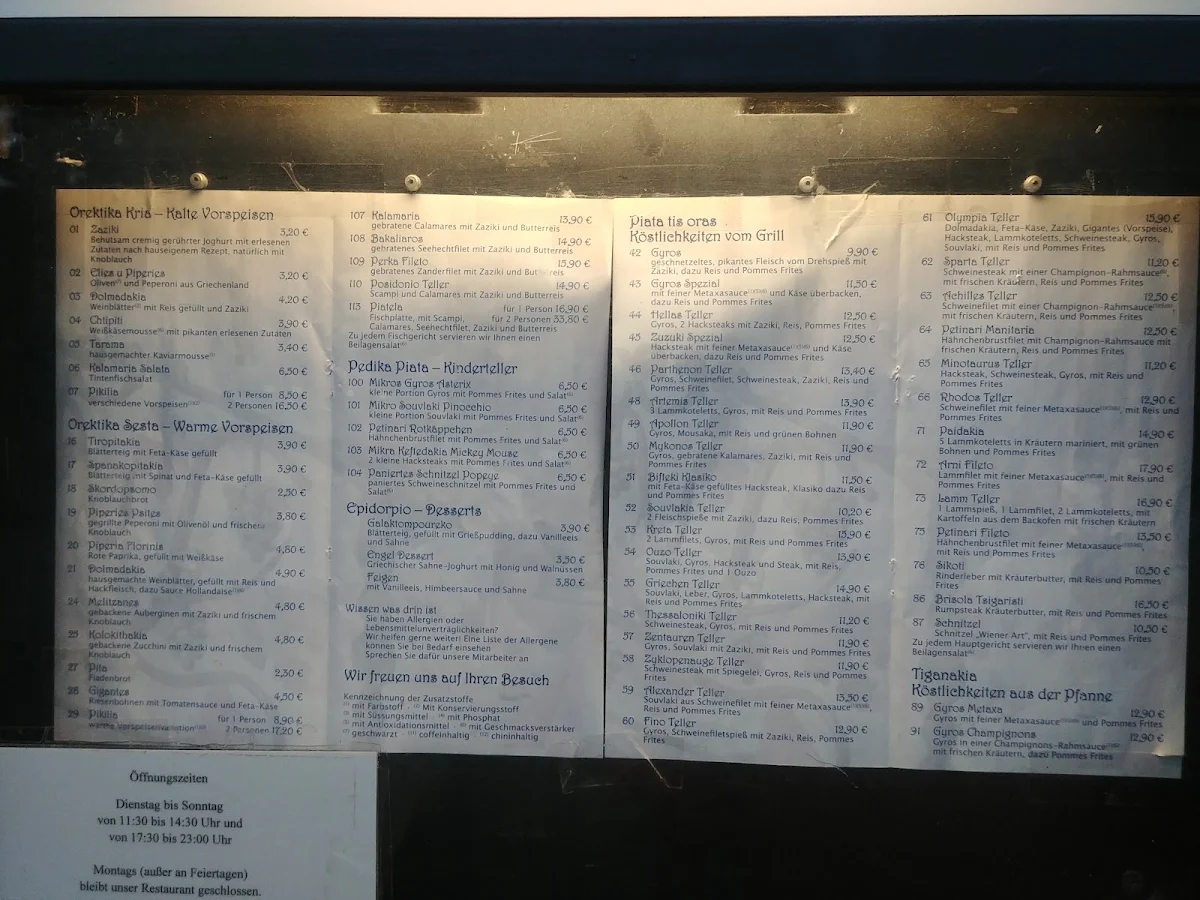 Orektika Kria – Kalte Vorspeisen
01 Zaziki 3,20 €
Behutsam cremig gerührter Joghurt mit erlesenen
Zutaten nach hauseigenem Rezept, natürlich mit
Knoblauch
02 Elies u Piperies 3,20 €
Oliven und Peperoni aus Griechenland
03 Dolmadakia 4,20 €
Weinblätter mit Reis gefüllt und Zaziki
04 Chtipiti 3,90 €
Weißkäsemousse mit pikanten erlesenen Zutaten
05 Tarama 3,40 €
hausgemachter Kaviarmousse
06 Kalamaria Salata 6,50 €
Tintenfischsalat
07 Pikilia für 1 Person 8,50 €
verschiedene Vorspeisen 2 Personen 16,50 €
Orektika Sesta – Warme Vorspeisen
16 Tiropitakia 3,90 €
Blätterteig mit Feta-Käse gefüllt
17 Spanakopitakia 3,90 €
Blätterteig mit Spinat und Feta-Käse gefüllt
18 Skordopsomo 2,50 €
Knoblauchbrot
19 Piperies Psites 3,80 €
gegrillte Peperoni mit Olivenöl und frischen
Knoblauch
20 Piperia Florinis 4,80 €
Rote Paprika, gefüllt mit Weißkäse
21 Dolmadakia 4,90 €
hausgemachte Weinblätter, gefüllt mit Reis und
Hackfleisch, dazu Sauce Hollandaise
24 Melitzanes 4,80 €
gebackene Auberginen mit Zaziki und frischem
Knoblauch
25 Kolokithakia 4,80 €
gebackene Zucchini mit Zaziki und frischem
Knoblauch
27 Pita 2,30 €
Fladenbrot
28 Gigantes 4,50 €
Riesenbohnen mit Tomatensauce und Feta-Käse
29 Pikilia für 1 Person 8,90 €
warme Vorspeisenvariation 2 Personen 17,20 €
107 Kalamaria 13,90 €
gebratene Calamares mit Zaziki und Butterreis
108 Bakaliaros 14,90 €
gebratenes Seehechtfilet mit Zaziki und Butterreis
109 Perka Fileto 15,90 €
gebratenes Zanderfilet mit Zaziki und Butterreis
110 Posidonio Teller 14,90 €
Scampi und Calamares mit Zaziki und Butterreis
113 Piatela für 1 Person 16,90 €
Fischplatte, mit Scampi, für 2 Personen 33,80 €
Calamares, Seehechtfilet, Zaziki und Butterreis
Zu jedem Fischgericht servieren wir Ihnen einen
Beilagensalat
Pedika Piata – Kinderteller
100 Mikros Gyros Asterix 6,50 €
kleine Portion Gyros mit Pommes Frites und Salat
101 Mikro Souvlaki Pinocchio 6,50 €
kleine Portion Souvlaki mit Pommes Frites und Salat
102 Petinari Rotkäppchen 6,50 €
Hähnchenbrustfilet mit Pommes Frites und Salat
103 Mikra Keftedakia Mickey Mouse 6,50 €
2 kleine Hacksteaks mit Pommes Frites und Salat
104 Paniertes Schnitzel Popeye 6,50 €
paniertes Schweineschnitzel mit Pommes Frites und
Salat
Epidorpio – Desserts
Galaktompoureko 3,90 €
Blätterteig, gefüllt mit Grießpudding, dazu Vanilleeis
und Sahne
Engel Dessert 3,50 €
Griechischer Sahne-Joghurt mit Honig und Walnüssen
Feigen 3,80 €
mit Vanilleeis, Himbeersauce und Sahne
Wissen was drin ist
Sie haben Allergien oder
Lebensmittelunverträglichkeiten?
Wir helfen gerne weiter! Eine Liste der Allergene
können Sie bei Bedarf einsehen
Sprechen Sie dafür unsere Mitarbeiter an
Wir freuen uns auf Ihren Besuch
Kennzeichnung der Zusatzstoffe
(1) mit Farbstoff · (2) Mit Konservierungsstoff
(3) mit Süssungsmittel · (4) mit Phosphat
(5) mit Antioxidationsmittel · (6) mit Geschmacksverstärker
(7) geschwärzt · (11) coffeinhaltig · (12) chininhaltig
Piata tis oras
Köstlichkeiten vom Grill
42 Gyros 9,90 €
geschnetzeltes, pikantes Fleisch vom Drehspieß mit
Zaziki, dazu Reis und Pommes Frites
43 Gyros Spezial 11,50 €
mit feiner Metaxasauce und Käse überbacken,
dazu Reis und Pommes Frites
44 Hellas Teller 12,50 €
Gyros, 2 Hacksteaks mit Zaziki, Reis, Pommes Frites
45 Zuzuki Spezial 12,50 €
Hacksteak mit feiner Metaxasauce und Käse
überbacken, dazu Reis und Pommes Frites
46 Parthenon Teller 13,40 €
Gyros, Schweinefilet, Schweinesteak, Zaziki, Reis und
Pommes Frites
48 Artemis Teller 13,90 €
3 Lammkoteletts, Gyros, mit Reis und Pommes Frites
49 Apollon Teller 11,90 €
Gyros, Mousaka, mit Reis und grünen Bohnen
50 Mykonos Teller 11,90 €
Gyros, gebratene Kalamares, Zaziki, mit Reis und
Pommes Frites
51 Bifteki Klasiko 11,50 €
mit Feta-Käse gefülltes Hacksteak, Klasiko dazu Reis
und Pommes Frites
52 Souvlakia Teller 10,20 €
2 Fleischspieße mit Zaziki, dazu Reis, Pommes Frites
53 Kreta Teller 15,90 €
2 Lammfilets, Gyros, mit Reis und Pommes Frites
54 Ouzo Teller 13,90 €
Souvlaki, Gyros, Hacksteak und Steak, mit Reis,
Pommes Frites und 1 Ouzo
55 Griechen Teller 14,90 €
Souvlaki, Leber, Gyros, Lammkoteletts, Hacksteak, mit
Reis und Pommes Frites
56 Thessaloniki Teller 11,20 €
Schweinesteak, Gyros, mit Reis und Pommes Frites
57 Zentauren Teller 11,90 €
Gyros, Souvlaki mit Zaziki, Reis und Pommes Frites
58 Zyklopenauge Teller 11,90 €
Schweinesteak mit Spiegelei, Gyros, Reis und Pommes
Frites
59 Alexander Teller 13,50 €
Souvlaki aus Schweinefilet mit feiner Metaxasauce,
Reis und Pommes Frites
60 Fino Teller 12,90 €
Gyros, Schweinefiletspieß mit Zaziki, Reis, Pommes
Frites
61 Olympia Teller 15,90 €
Dolmadakia, Feta-Käse, Zaziki, Gigantes (Vorspeise),
Hacksteak, Lammkoteletts, Schweinesteak, Gyros,
Souvlaki, mit Reis und Pommes Frites
62 Sparta Teller 11,20 €
Schweinesteak mit einer Champignon-Rahmsauce,
mit frischen Kräutern, Reis und Pommes Frites
63 Achilles Teller 12,50 €
Schweinefilet mit einer Champignon-Rahmsauce,
mit frischen Kräutern, Reis und Pommes Frites
64 Petinari Manitaria 12,50 €
Hähnchenbrustfilet mit Champignon-Rahmsauce mit
frischen Kräutern, Reis und Pommes Frites
65 Minotaurus Teller 11,20 €
Hacksteak, Schweinesteak, Gyros, mit Reis und
Pommes Frites
66 Rhodos Teller 12,90 €
Schweinefilet mit feiner Metaxasauce, mit Reis und
Pommes Frites
71 Paidakia 14,90 €
5 Lammkoteletts in Kräutern mariniert, mit grünen
Bohnen und Pommes Frites
72 Arni Fileto 17,90 €
Lammfilet mit feiner Metaxasauce, mit Reis und
Pommes Frites
73 Lamm Teller 16,90 €
1 Lammspieß, 1 Lammfilet, 2 Lammkoteletts, mit
Kartoffeln aus dem Backofen mit frischen Kräutern
75 Petinari Fileto 13,50 €
Hähnchenbrustfilet mit feiner Metaxasauce,
mit Reis und Pommes Frites
76 Sikoti 10,50 €
Rinderleber mit Kräuterbutter, mit Reis und Pommes
Frites
86 Brisola Tsigaristi 16,50 €
Rumpsteak Kräuterbutter, mit Reis und Pommes Frites
87 Schnitzel 10,50 €
Schnitzel „Wiener Art", mit Reis und Pommes Frites
Zu jedem Hauptgericht servieren wir Ihnen einen
Beilagensalat
Tiganakia
Köstlichkeiten aus der Pfanne
89 Gyros Metaxa 12,90 €
Gyros mit feiner Metaxasauce und Pommes Frites
91 Gyros Champignons 12,90 €
Gyros in einer Champignons-Rahmsauce
mit frischen Kräutern, dazu Pommes Frites
Öffnungszeiten
Dienstag bis Sonntag
von 11:30 bis 14:30 Uhr und
von 17:30 bis 23:00 Uhr
Montags (außer an Feiertagen)
bleibt unser Restaurant geschlossen.